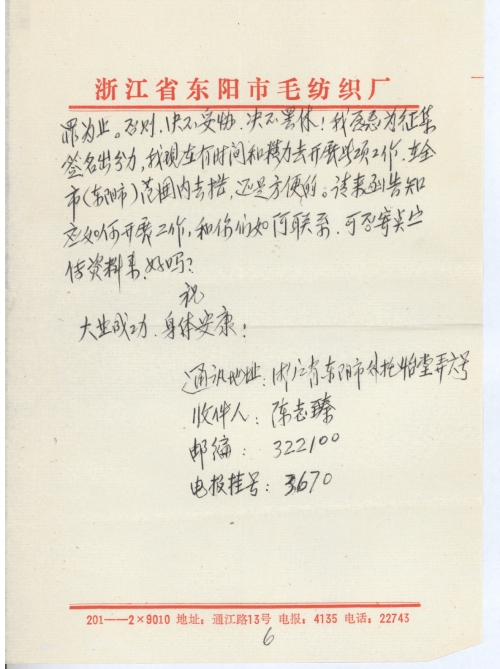 浙江省东阳市毛纺织厂
罪为止。否则,决不妥协、决不罢休!我愿意为征集
签名出分力,我现在有时间和精力去开展此项工作,在全
市(东阳市)范围内去搞,还是方便的。请来函告知
应如何开展工作,和你们如何联系,可否寄点宣
传资料来,好吗?
祝
大业成功、身体安康!
通讯地址:浙江省东阳市 怡堂弄六号
收件人:陈志臻
邮编:322100
电报挂号:3670
201——2×9010 地址:通江路13号 电报:4135 电话:22743
6